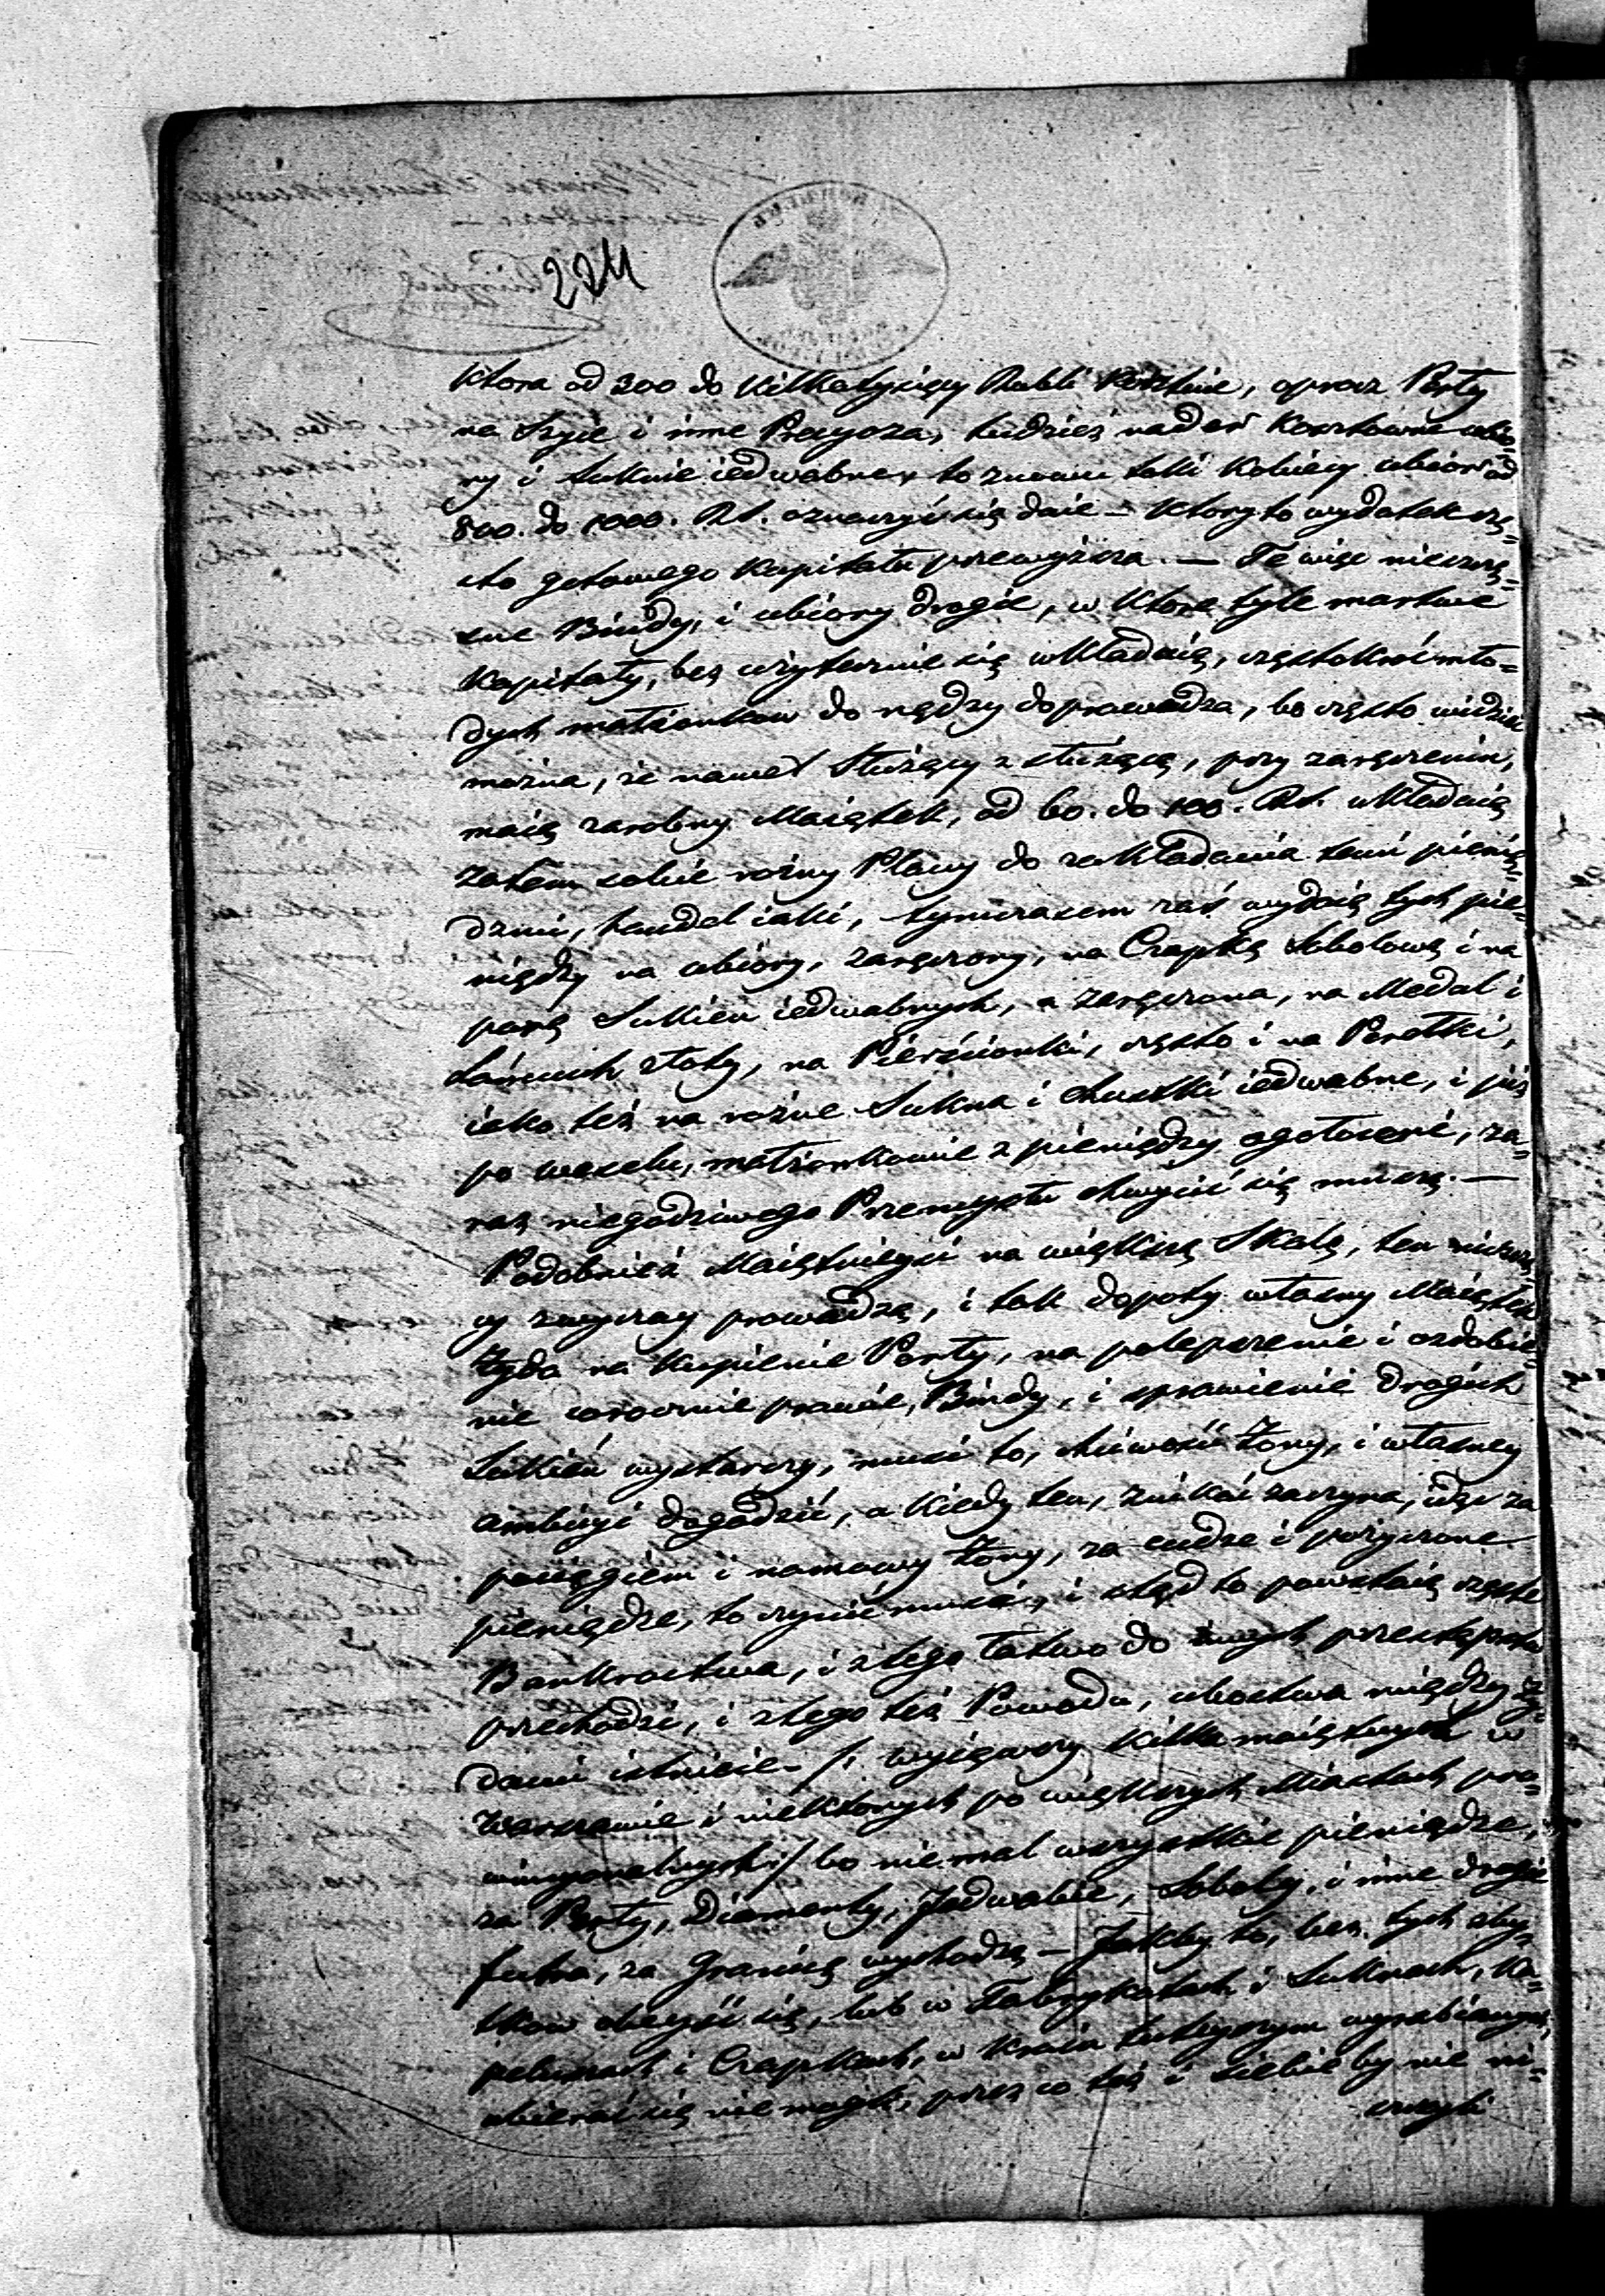 224
Ktora od 200 do Kilkatysięcy Rubli Kosztuie, oprocz Perły
na Szyie i inne Precyoza, tudzież nader Kosztowne ubio=
ry i Suknie iedwabne, to znowu taki Kobiecy ubiór od
800. do 1000. Rs. oznaczyć się daie — Ktory to wydatek czę=
sto gotowego Kapitału przewyższa. — Te więc nieszczę=
sne Bindy, i ubiory drogie, w Ktore tyle martwe
Kapitały, bez użytecznie się wkładaią, częstokroć mło=
dych małżonkow do nędzy doprowadza, bo często widzieć
można, że nawet Służący z służącą, przy zaręczeniu,
maią zarobny Maiątek, od 60. do 100. Rs. układaią
zatem sobie rożny Plany do zakładania temi pienię=
dzmi, handel iaki, tymczasem zaś wydaią tych pie=
niędzy na ubiory, zaręczony, na Czapkę Sobolową i na
parę Sukien iedwabnych, a zaręczona, na Medal i
Łancuch złoty, na Pierścionki, często i na Perełki,
iako też na rożne Sukna i chustki iedwabne, i już
po weselu, małżonkowie z pieniędzy ogołoceni, za=
raz niegodziwego Przemysłu chwycić się muszą. —
Podobnież Maiętnieysi na większą Skalę, ten nieszczę=
cy zwyczay prowadzą, i tak dopoty własny Maiątek
Żyda na Kupienie Perły, na polepszenie i ozdobie=
nie corocznie prawie, Bindy, i sprawienie drogich
Sukień wystarczy, musi to, chciwość Żony, i własney
ambicyi dogodzić, a Kiedy ten, znikać zaczyna, idąc za
pociągiem i namowy Żony, za cudze i pożyczone
pieniądze, to czynić musi, i ztąd to powstaią częste
Bankroctwa, i z tego łatwo do innych przestępstw
przechodzi, i z tego też Powodu, ubostwa między Ży=
dami istnieie. /: wyiąwszy Kilka maiętnych w
Warszawie i niektorych po większych Miastach pro=
wincyonalnych :/ bo niemal wszystkie pieniądze,
za Perły, Diamenty, Jedwabie, Soboły, i inne drogie
futra, za Granicę wychodzą — Jakby to, bez tych zby=
tkow obeyść się, lub w Fabrykatach i Suknach, Ka=
peluszach i Czapkach, w Kraiu tuteyszym wyrabianych,
ubierać się nie mogli, przez co też i siebie by nie ni=
szczyli